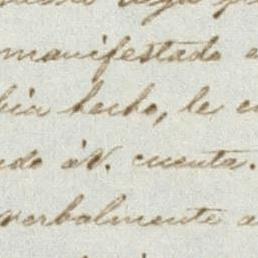 manifestado
bia hecho, le
ndo á V. cuenta.
verbalmente a